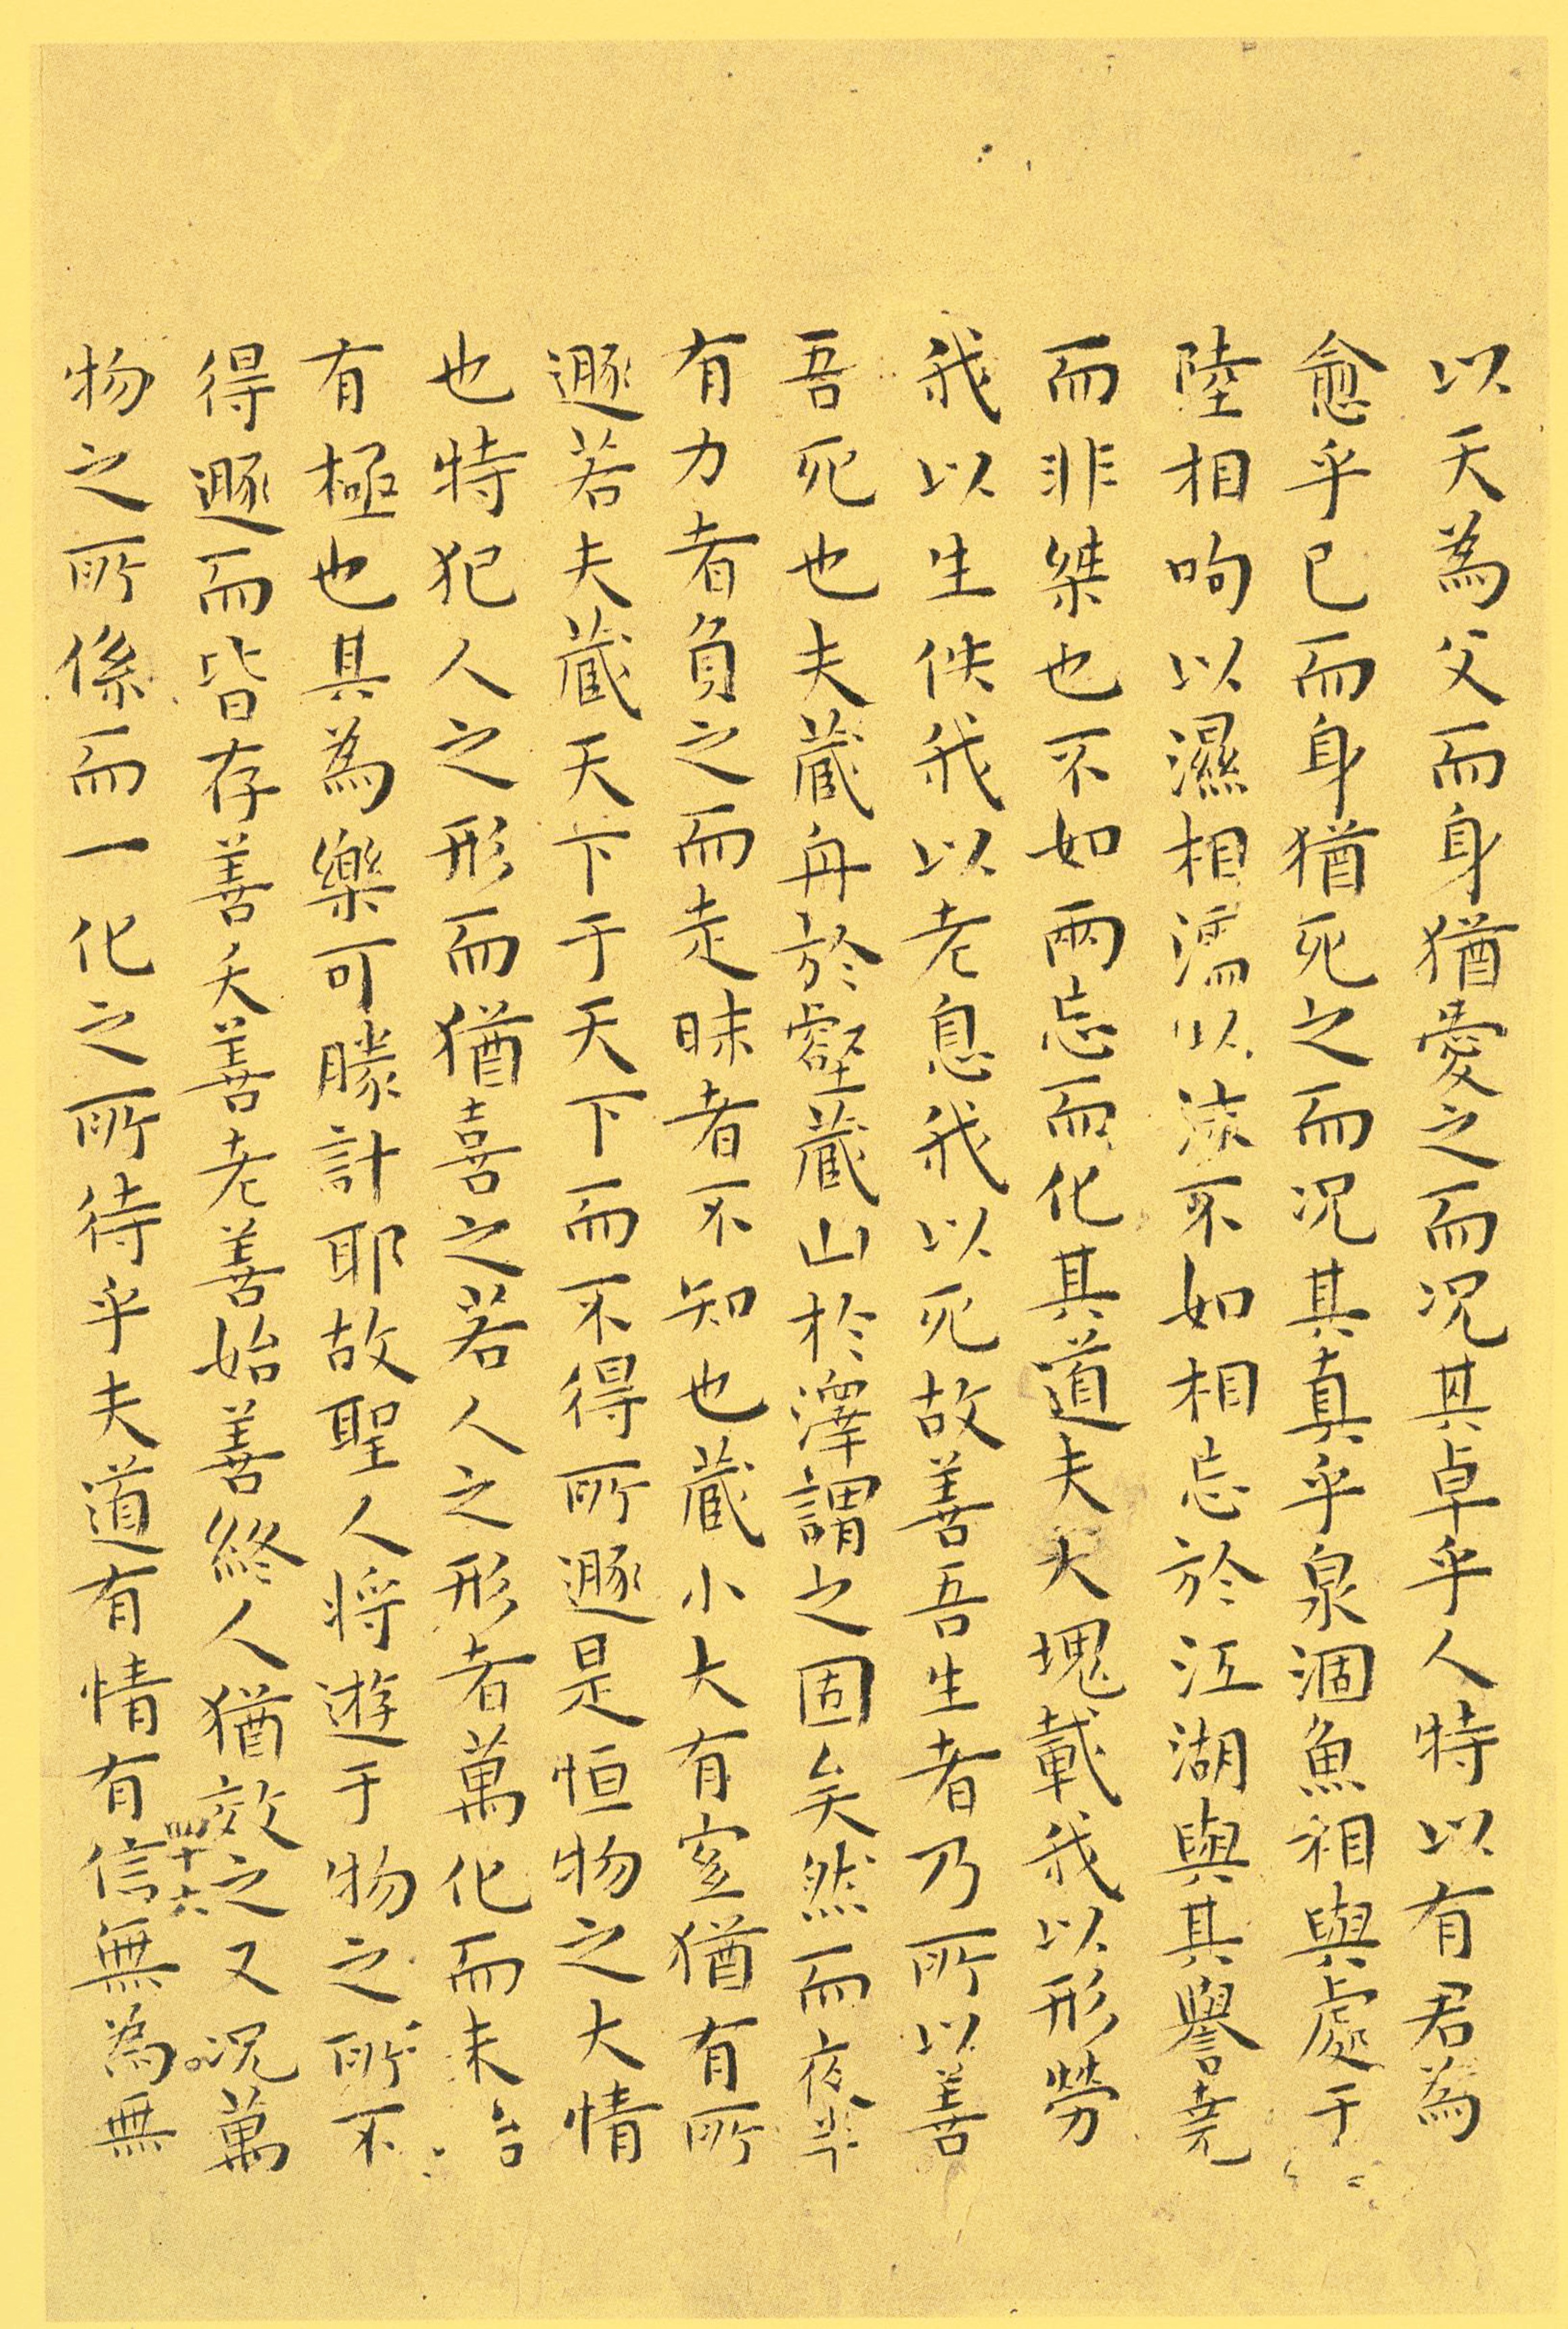 以天為父而身猶愛之而况其卓乎人特以有君為
愈乎已而身猶死之而况其真乎泉涸魚相與處于
陸相呴以濕相濡以沫不如相忘於江湖與其譽堯
而非桀也不如兩忘而化其道夫大塊載我以形勞
我以生佚我以老息我以死故善吾生者乃所以善
吾死也夫藏舟於壑藏山於澤謂之固矣然而夜半
有力者負之而走昧者不知也藏小大有宜猶有所
遯若夫藏天下于天下而不得所遯是恒物之大情
也特犯人之形而猶喜之若人之形者萬化而未始
有極也其為樂可勝計耶故聖人将遊于物之所不
得遯而皆存善夭善老善始善終人猶效之又况萬
四十六
物之所係而一化之所待乎夫道有情有信無為無